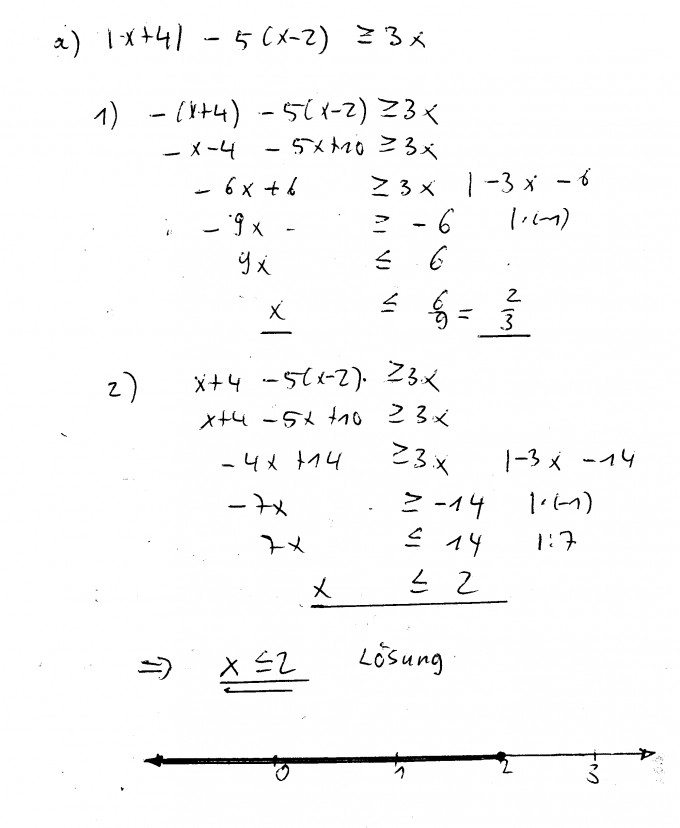 a) |x+4| - 5(x-2) ≥ 3x
1) -(x+4) - 5(x-2) ≥ 3x
-x-4 - 5x+10 ≥ 3x
-6x+6 ≥ 3x |-3x -6
-9x ≥ -6 |·(-1)
9x ≤ 6
x ≤ 6/9 = 2/3
2) x+4 -5(x-2) ≥ 3x
x+4 -5x +10 ≥ 3x
-4x +14 ≥ 3x |-3x -14
-7x ≥ -14 |·(-1)
7x ≤ 14 |:7
x ≤ 2
=> x ≤ 2 Lösung
0 1 2 3